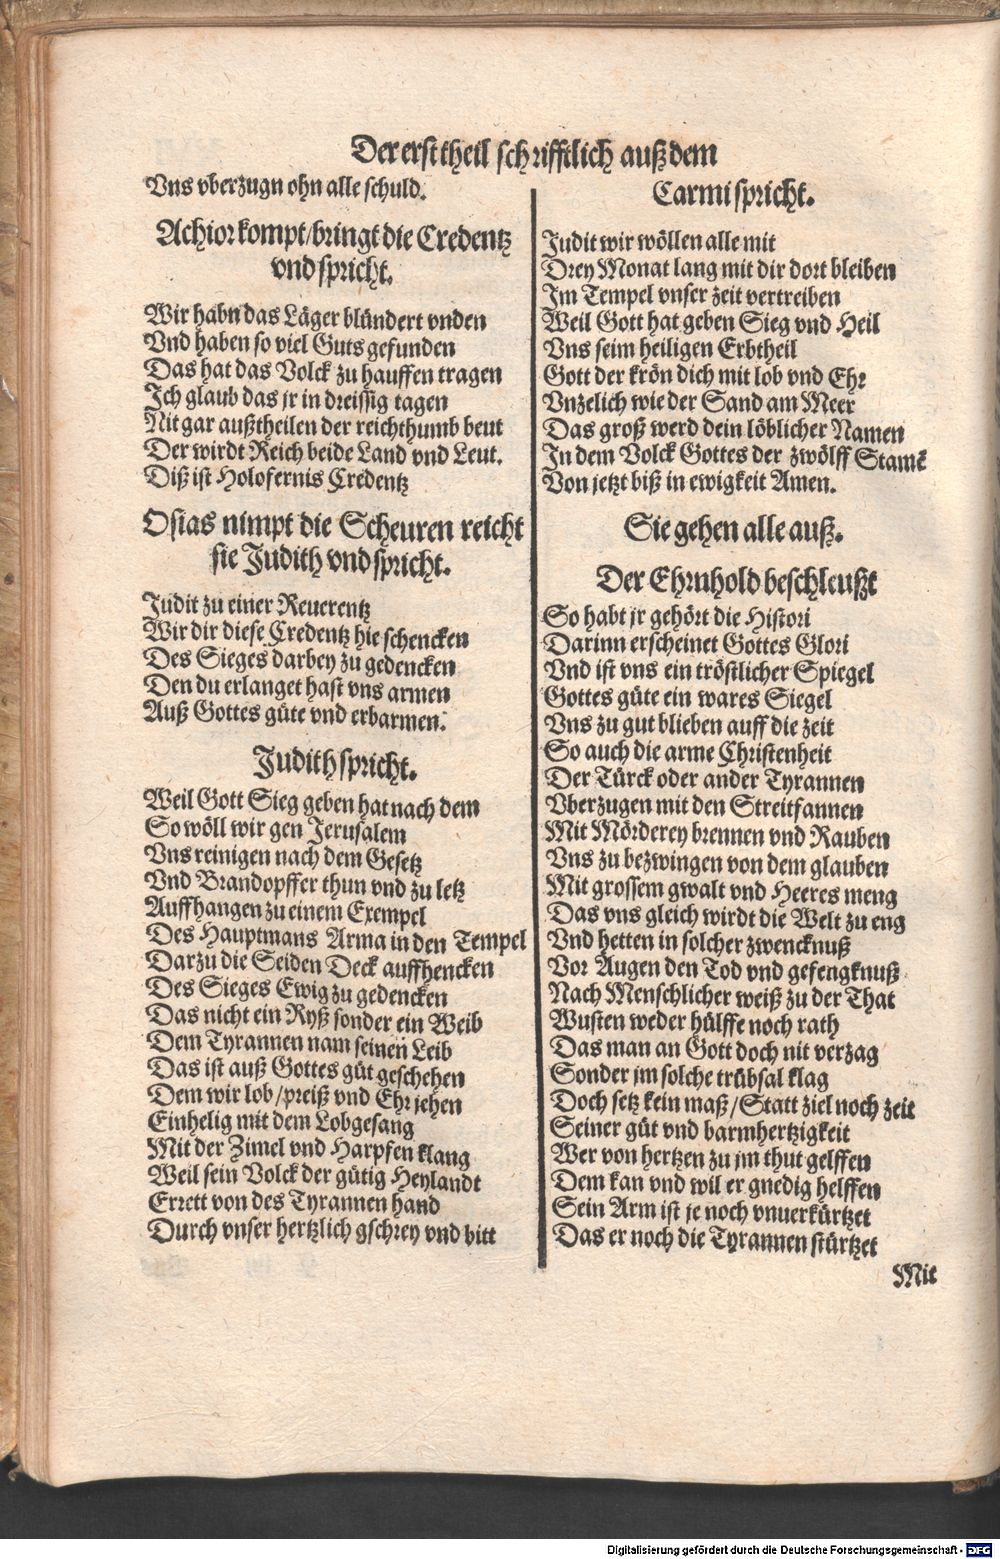 Der erst theil schrifftlich auß dem
Vns vberzugn ohn alle schuld.
Achior kompt/bringt die Credentz
vnd spricht.
Wir habn das Läger blündert vnden
Vnd haben so viel Guts gefunden
Das hat das Volck zu hauffen tragen
Ich glaub das jr in dreissig tagen
Nit gar außtheilen der reichthumb beut
Der wirdt Reich beide Land vnd Leut.
Diß ist Holofernis Credentz
Osias nimpt die Scheuren reicht
sie Judith vnd spricht.
Judit zu einer Reuerentz
Wir dir diese Credentz hie schencken
Des Sieges darbey zu gedencken
Den du erlanget hast vns armen
Auß Gottes güte vnd erbarmen.
Judith spricht.
Weil Gott Sieg geben hat nach dem
So wöll wir gen Jerusalem
Vns reinigen nach dem Gesetz
Vnd Brandopffer thun vnd zu letz
Auffhangen zu einem Exempel
Des Hauptmans Arma in den Tempel
Darzu die Seiden Deck auffhencken
Des Sieges Ewig zu gedencken
Das nicht ein Ryß sonder ein Weib
Dem Tyrannen nam seinen Leib
Das ist auß Gottes güt geschehen
Dem wir lob/preiß vnd Ehr jehen
Einhelig mit dem Lobgesang
Mit der Zimel vnd Harpfen klang
Weil sein Volck der gütig Heylandt
Errett von des Tyrannen hand
Durch vnser hertzlich gschrey vnd bitt
Carmi spricht.
Judit wir wöllen alle mit
Drey Monat lang mit dir dort bleiben
Im Tempel vnser zeit vertreiben
Weil Gott hat geben Sieg vnd Heil
Vns seim heiligen Erbtheil
Gott der krön dich mit lob vnd Ehr
Vnzelich wie der Sand am Meer
Das groß werd dein löblicher Namen
In dem Volck Gottes der zwölff Stamē
Von jetzt biß in ewigkeit Amen.
Sie gehen alle auß.
Der Ehrnhold beschleußt
So habt jr gehört die Histori
Darinn erscheinet Gottes Glori
Vnd ist vns ein tröstlicher Spiegel
Gottes güte ein wares Siegel
Vns zu gut blieben auff die zeit
So auch die arme Christenheit
Der Türck oder ander Tyrannen
Vberzugen mit den Streitfannen
Mit Mörderey brennen vnd Rauben
Vns zu bezwingen von dem glauben
Mit grossem gwalt vnd Heeres meng
Das vns gleich wirdt die Welt zu eng
Vnd hetten in solcher zwencknuß
Vor Augen den Tod vnd gefengknuß
Nach Menschlicher weiß zu der That
Wusten weder hülffe noch rath
Das man an Gott doch nit verzag
Sonder jm solche trübsal klag
Doch setz kein maß/Statt ziel noch zeit
Seiner güt vnd barmhertzigkeit
Wer von hertzen zu jm thut gelffen
Dem kan vnd wil er gnedig helffen
Sein Arm ist je noch vnuerkürtzet
Das er noch die Tyrannen stürtzet
Mit
Digitalisierung gefördert durch die Deutsche Forschungsgemeinschaft - DFG